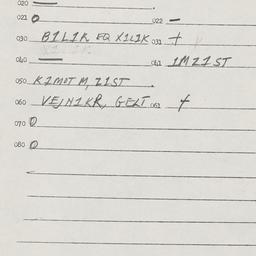 020 —
021 0 022 —
030 B1L1R EQ X1L1K 031 +
040 — 041 1MZ1ST
050 K1MOT M, Z1ST
060 VEJN1KR, GEZT 061 +
070 0
080 0